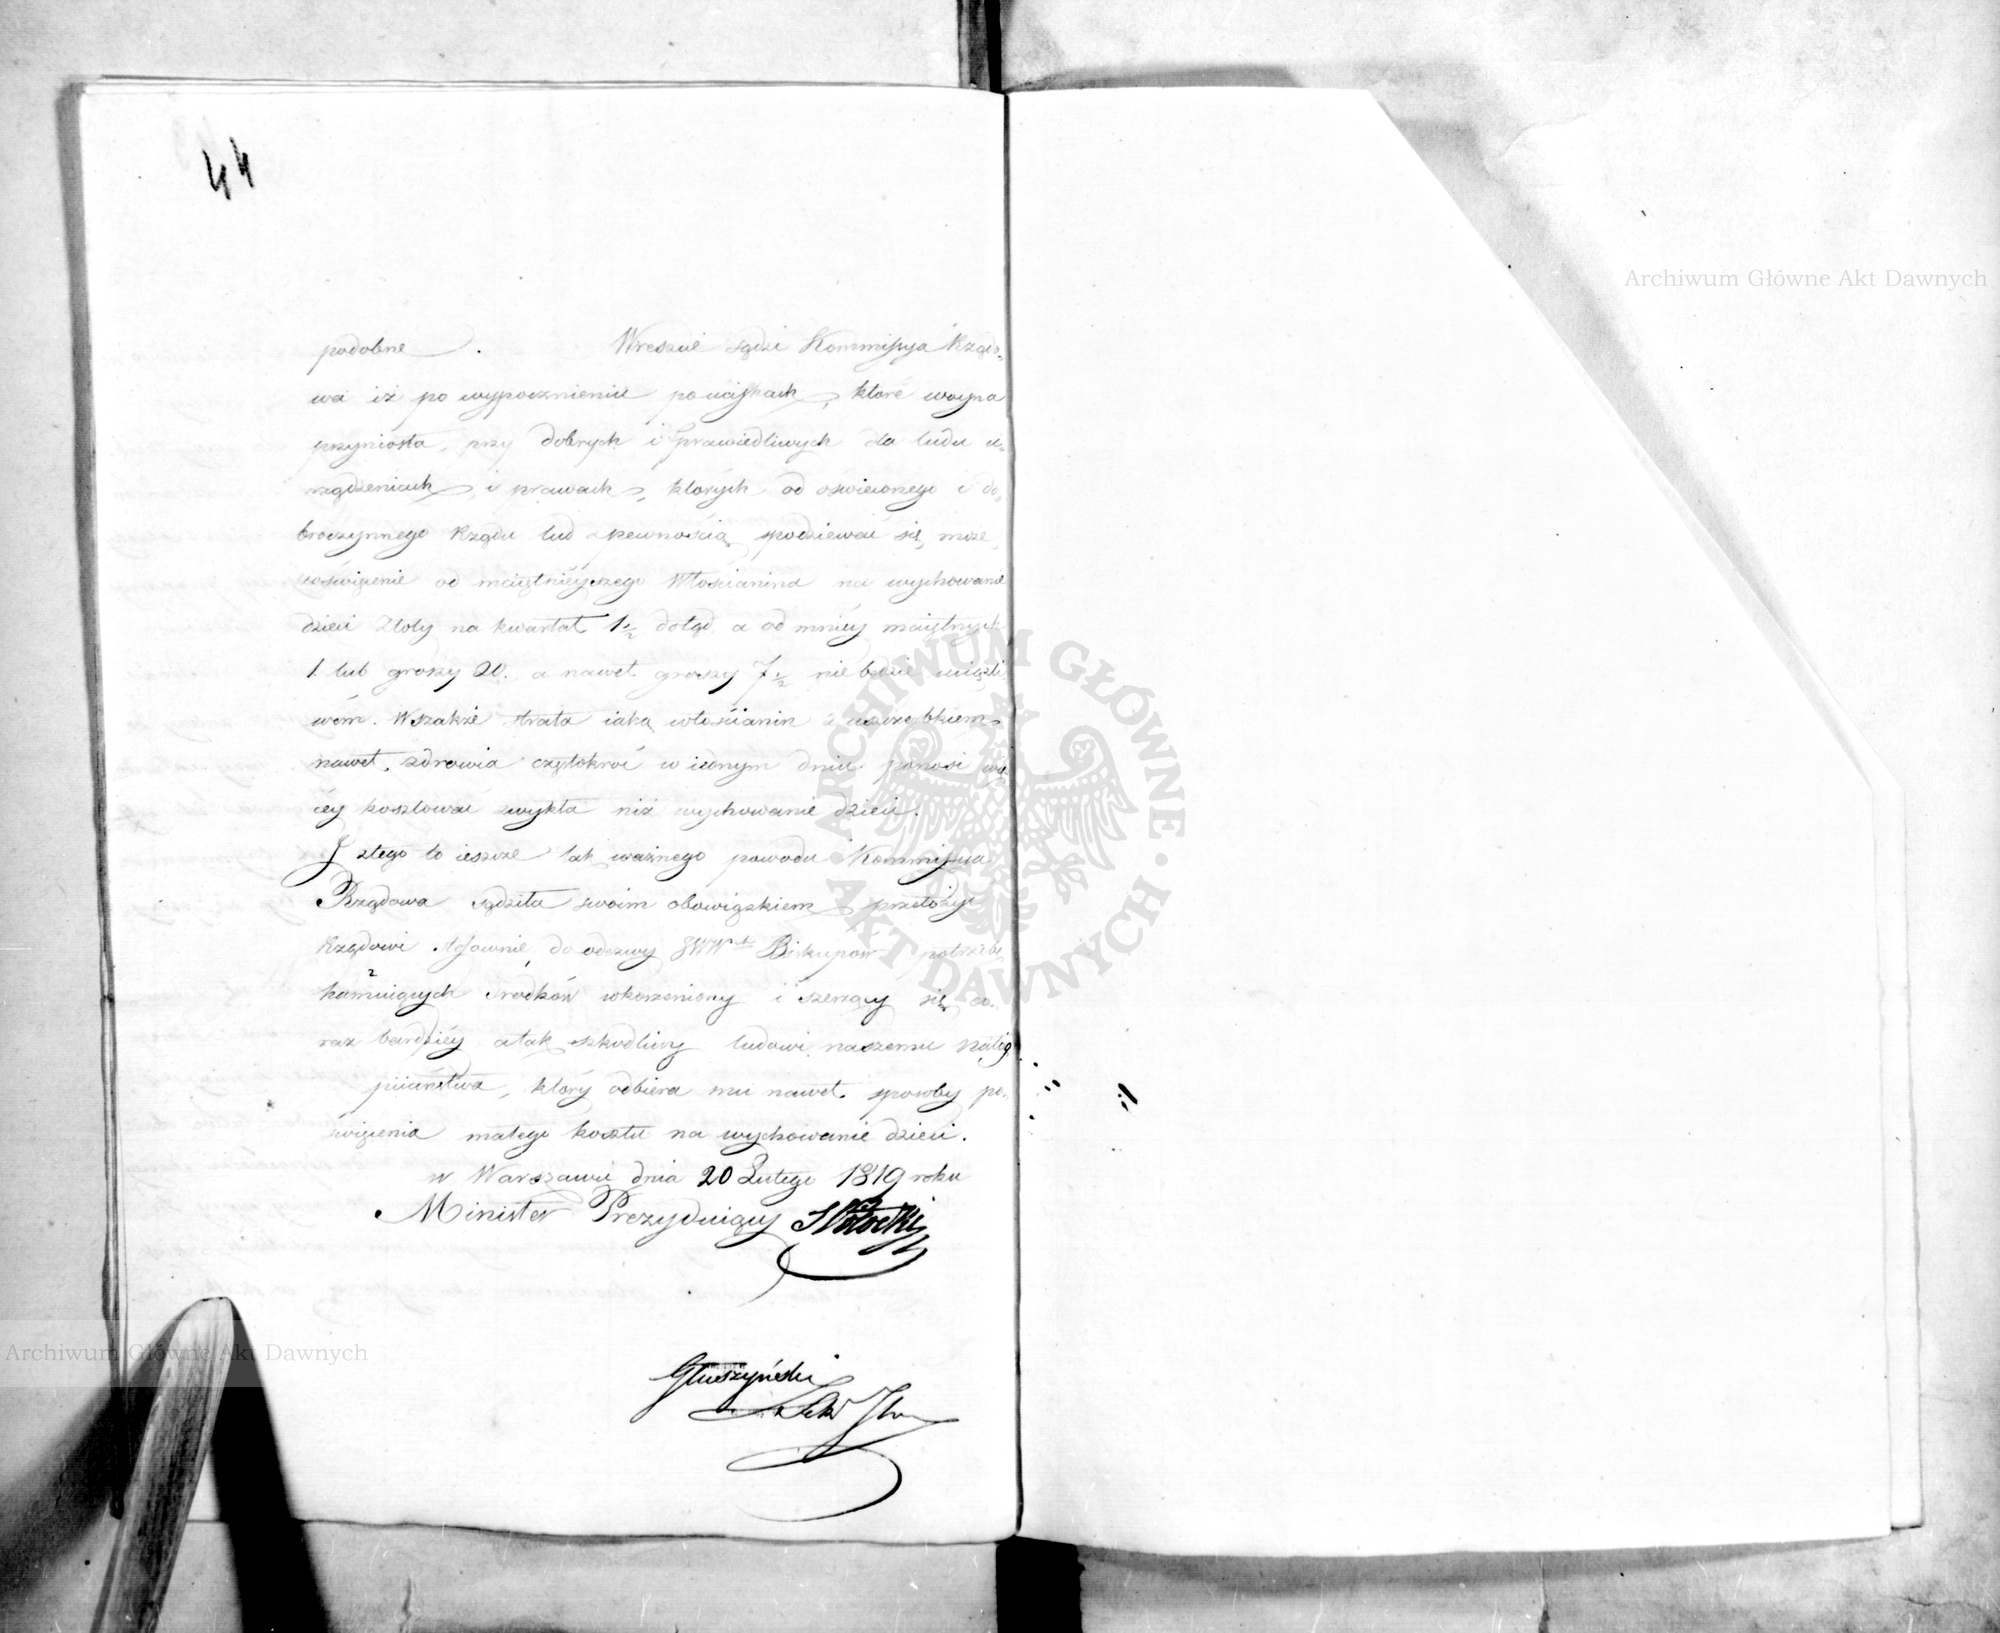 44
podobne. Wreszcie sądzi Kommissya Rządo-
wa iż po wypocznieniu po uciskach, które woyna
przyniosła, przy dobrych i sprawiedliwych dla ludu u-
rządzeniach i prawach, których od oświeconego i do-
broczynnego Rządu lud z pewnością spodziewać się może,
poświęcenie od maiętnieyszego Włościanina na wychowanie
dzieci Złoty na kwartał 1 1/2 dotąd, a od mniey maiętnych
1 lub groszy 20. a nawet groszy 7 1/2 nie będzie uciążli-
wém. Wszakże strata iaką włościanin z uszczerbkiem
nawet zdrowia częstokroć w iednym dniu ponosi wię-
cey kosztować zwykła niż wychowanie dzieci.
I z tego to ieszcze tak ważnego powodu Kommissya
Rządowa sądziła swoim obowiązkiem przełożyć
Rządowi stosownie do odezwy JWW Biskupów potrzebę
hamuiących środków wkorzeniony i szerzący się co-
raz bardziéy a tak szkodliwy ludowi naszemu nałóg
piiaństwa, który odbiera mu nawet sposoby po-
święcenia małego kosztu na wychowanie dzieci.
w Warszawie dnia 20 Lutego 1819 roku
Minister Prezyduiący St Potocki
Głuszyński
Archiwum Główne Akt Dawnych
Archiwum Główne Akt Dawnych
ARCHIWUM GŁÓWNE AKT DAWNYCH